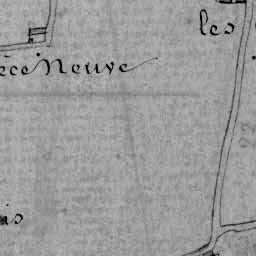 les
èce Neuve
ais